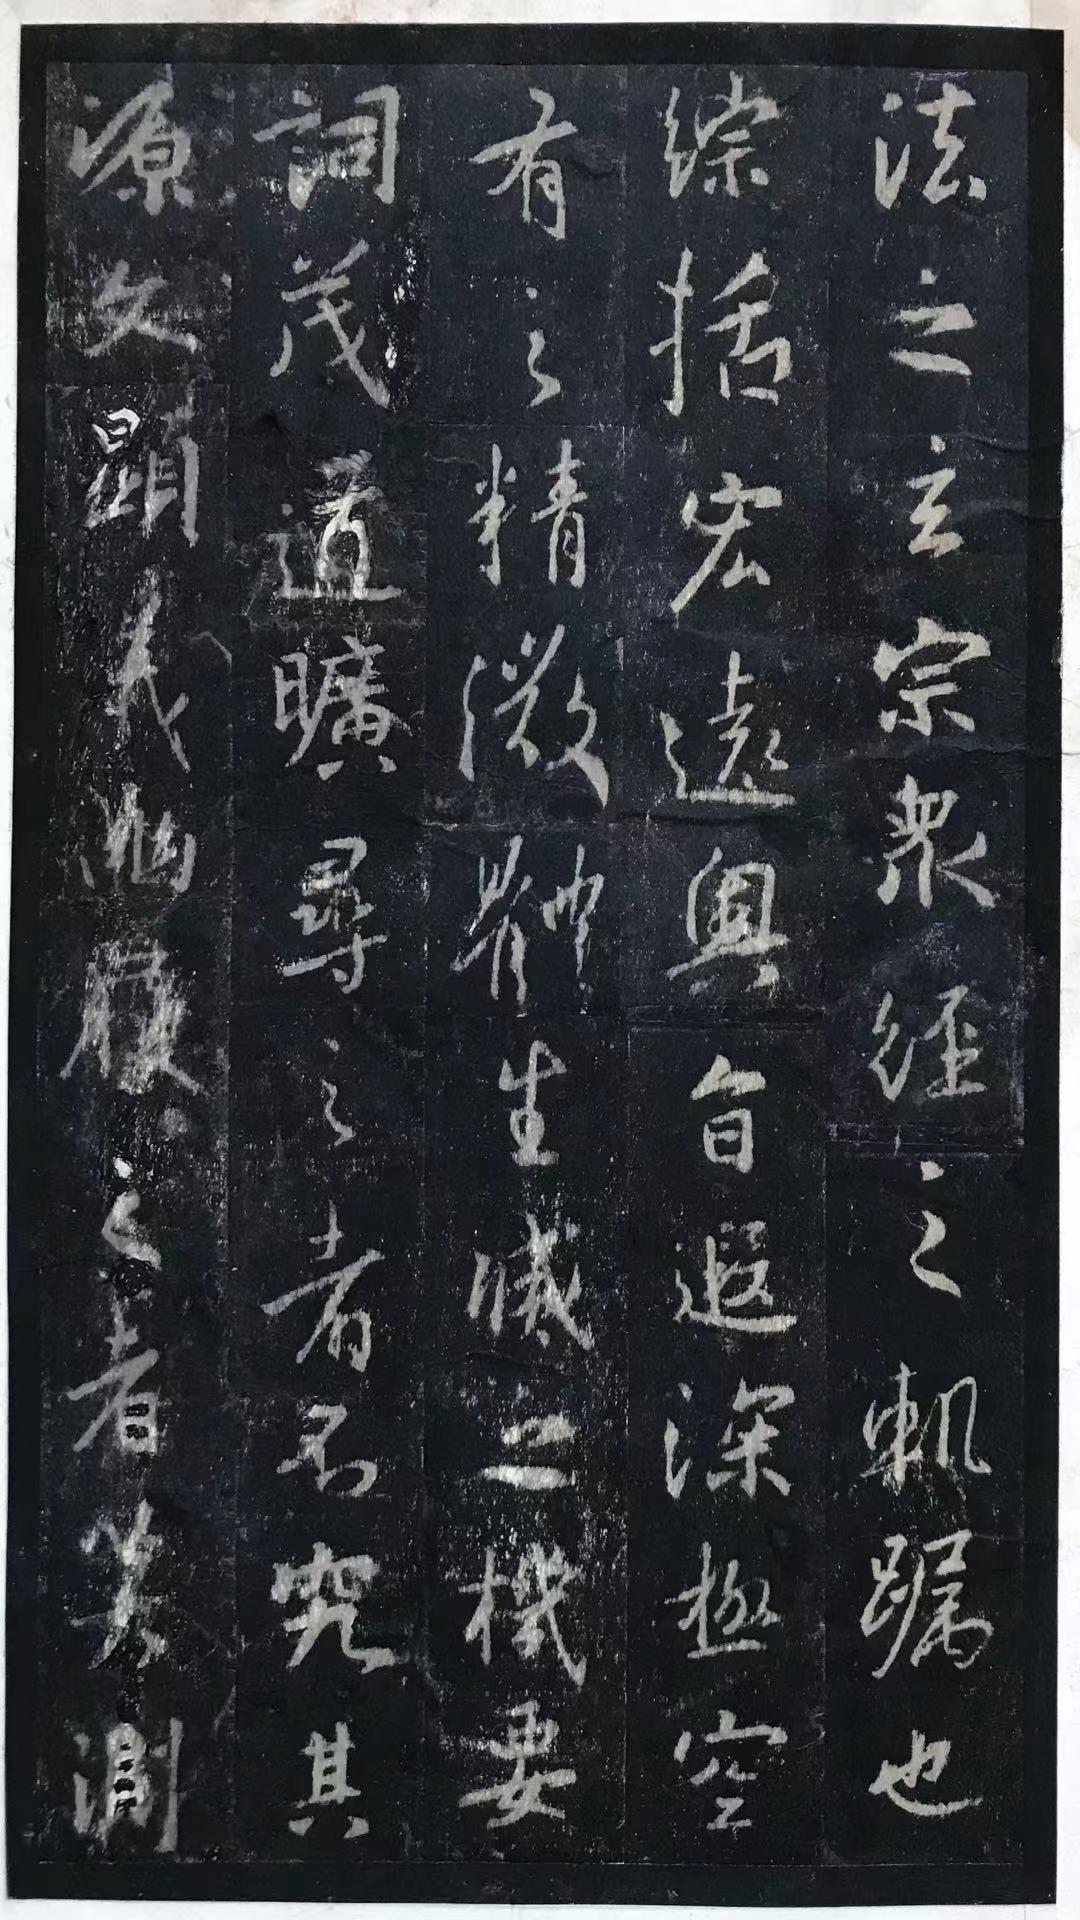 法之玄宗衆經之軏躅也
綜括宏遠奧旨遐深極空
有之精微體生滅之機要
詞茂道曠尋之者不究其
源文顯義幽履之者莫測